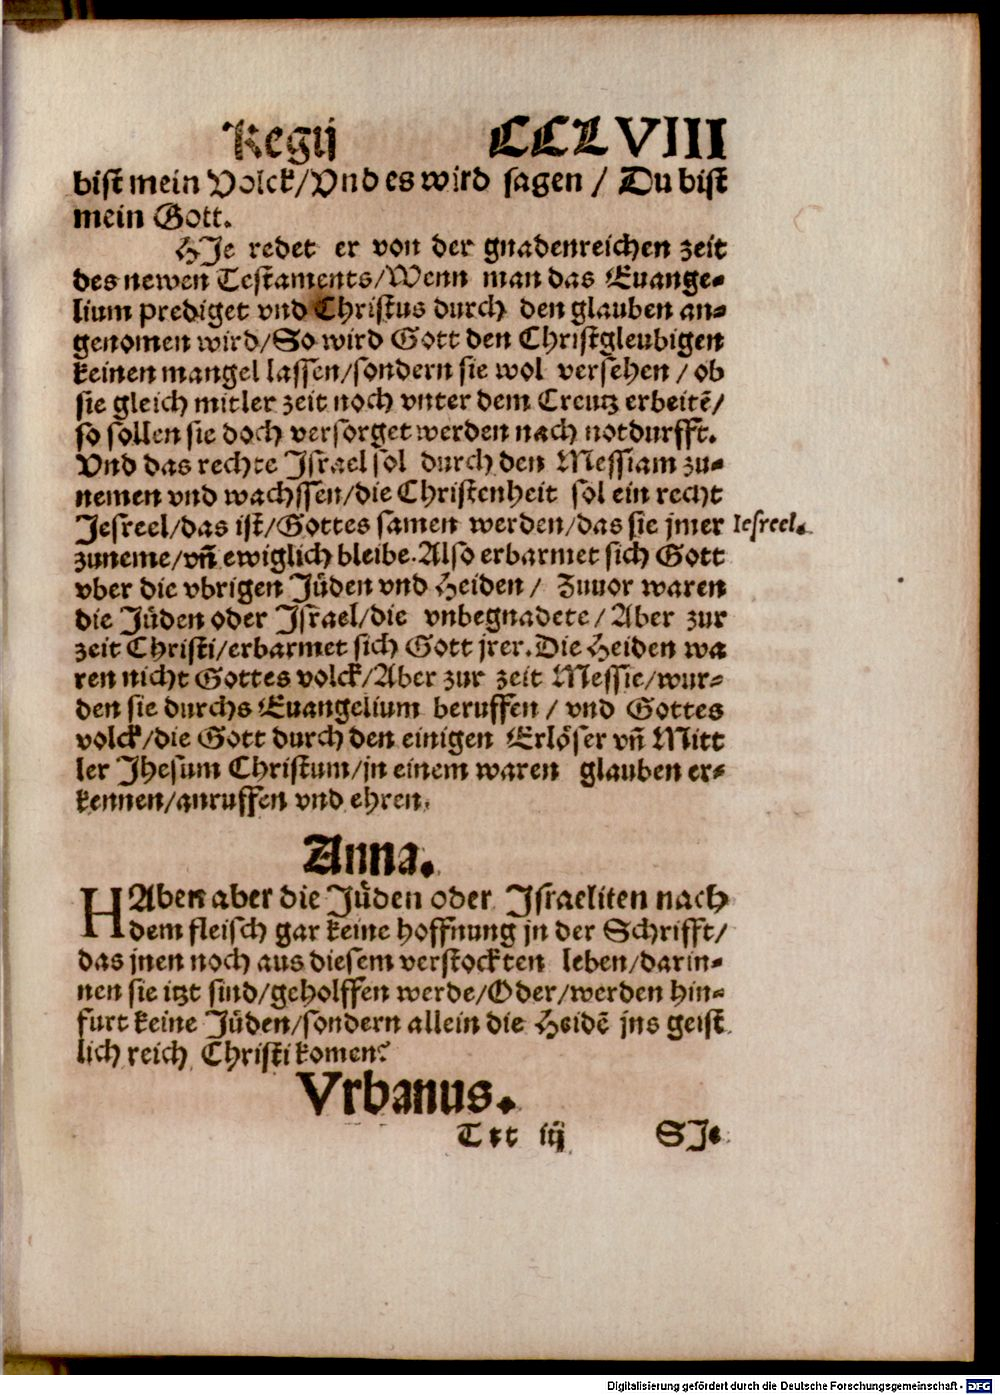 Regij CCLVIII
bist mein Volck/Vnd es wird sagen / Du bist
mein Gott.
HJe redet er von der gnadenreichen zeit
des newen Testaments/Wenn man das Euange-
lium prediget vnd Christus durch den glauben an-
genomen wird/So wird Gott den Christgleubigen
keinen mangel lassen/sondern sie wol versehen / ob
sie gleich mitler zeit noch vnter dem Creutz erbeitē/
so sollen sie doch versorget werden nach notdurfft.
Vnd das rechte Jsrael sol durch den Messiam zu-
nemen vnd wachssen/die Christenheit sol ein recht
Jesreel/das ist/Gottes samen werden/das sie jmer Iesreel.
zuneme/vñ ewiglich bleibe. Also erbarmet sich Gott
vber die vbrigen Jüden vnd Heiden / Zuuor waren
die Jüden oder Jsrael/die vnbegnadete/Aber zur
zeit Christi/erbarmet sich Gott jrer. Die Heiden wa
ren nicht Gottes volck/Aber zur zeit Messie/wur-
den sie durchs Euangelium beruffen / vnd Gottes
volck/die Gott durch den einigen Erlöser vñ Mitt
ler Jhesum Christum/jn einem waren glauben er-
kennen/anruffen vnd ehren.
Anna.
HAben aber die Jüden oder Jsraeliten nach
dem fleisch gar keine hoffnung jn der Schrifft/
das jnen noch aus diesem verstockten leben/darin-
nen sie itzt sind/geholffen werde/Oder/werden hin-
furt keine Jüden/sondern allein die Heidē jns geist
lich reich Christi komen?
Vrbanus.
Ttt iij SJe
Digitalisierung gefördert durch die Deutsche Forschungsgemeinschaft - DFG